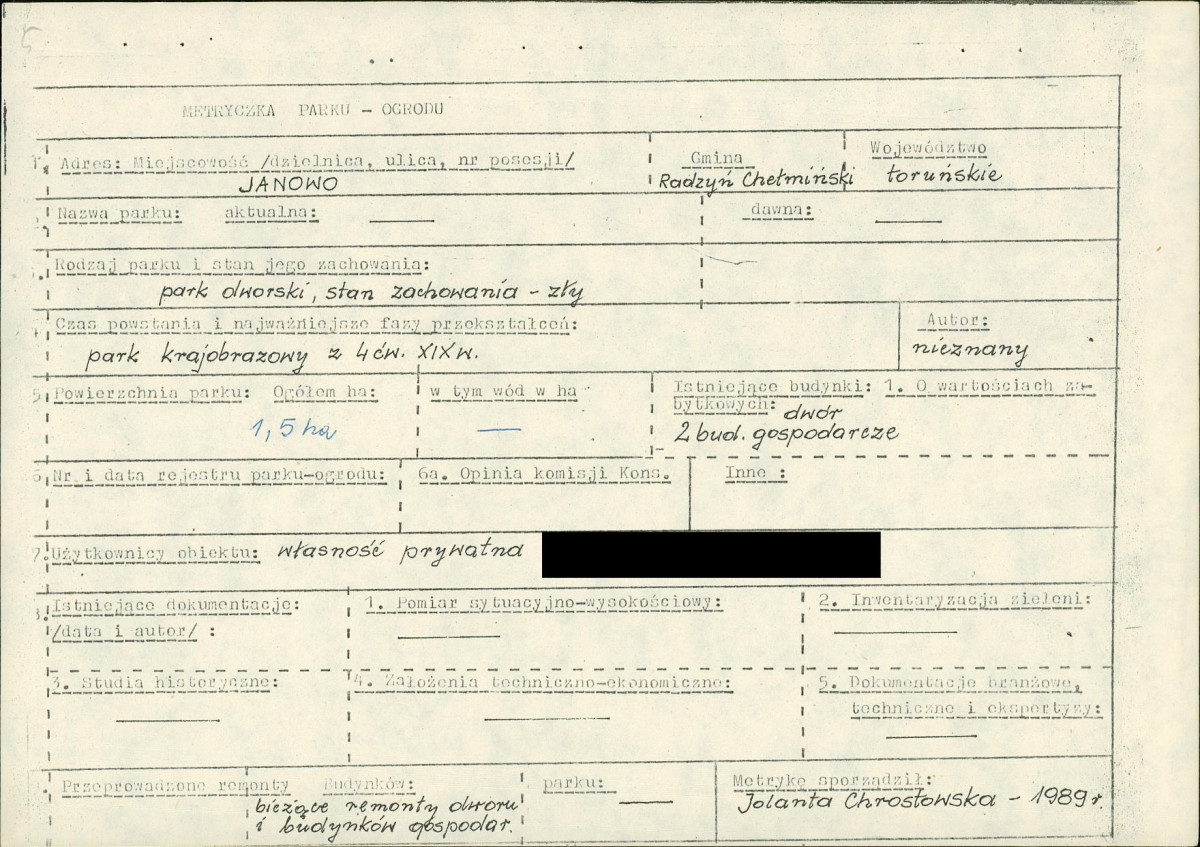 METRYCZKA PARKU - OGRODU
1. Adres: Miejscowość /dzielnica, ulica, nr posesji/
JANOWO
Gmina
Radzyń Chełmiński
Województwo
toruńskie
Nazwa parku: aktualna: ———
dawna: ———
Rodzaj parku i stan jego zachowania:
park dworski, stan zachowania - zły
Czas powstania i najważniejsze fazy przekształceń:
park krajobrazowy z 4 ćw. XIX w.
Autor:
nieznany
5. Powierzchnia parku: Ogółem ha:
1,5 ha
w tym wód w ha
———
Istniejące budynki: 1. O wartościach za-
bytkowych: dwór
2 bud. gospodarcze
6. Nr i data rejestru parku-ogrodu:
6a. Opinia komisji Kons.
Inne :
7. Użytkownicy obiektu: własność prywatna
Istniejące dokumentacje:
/data i autor/ :
1. Pomiar sytuacyjno-wysokościowy:
———
2. Inwentaryzacja zieleni:
———
3. Studia historyczne:
———
4. Założenia techniczno-ekonomiczne:
———
5. Dokumentacje branżowe,
techniczne i ekspertyzy:
———
Przeprowadzone remonty Budynków:
bieżące remonty dworu
i budynków gospodar.
parku: ———
Metrykę sporządził:
Jolanta Chrostowska - 1989 r.